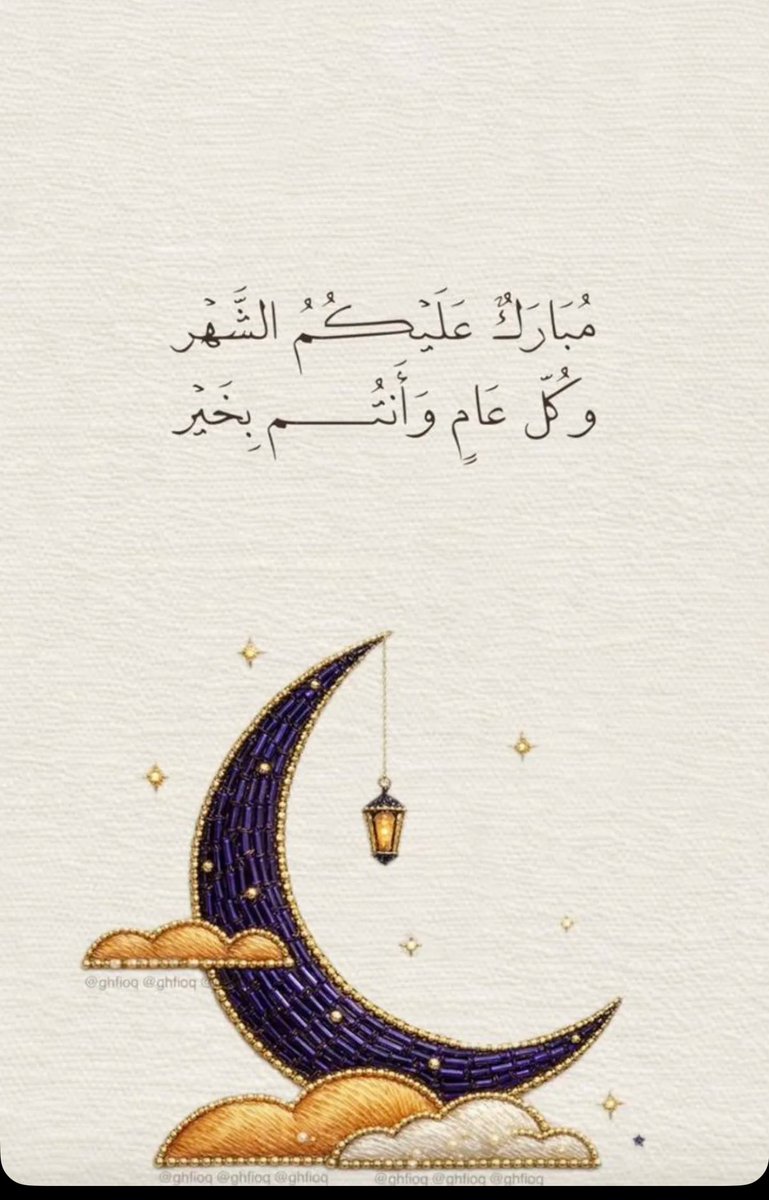 مُبَارَكٌ عَلَيْكُمُ الشَّهْر
وكُلّ عَامٍ وَأَنتُـــــم بِخَيْر
@ghfioq @ghfioq
@ghfioq @ghfioq @ghfioq @ghfioq @ghfioq @ghfioq